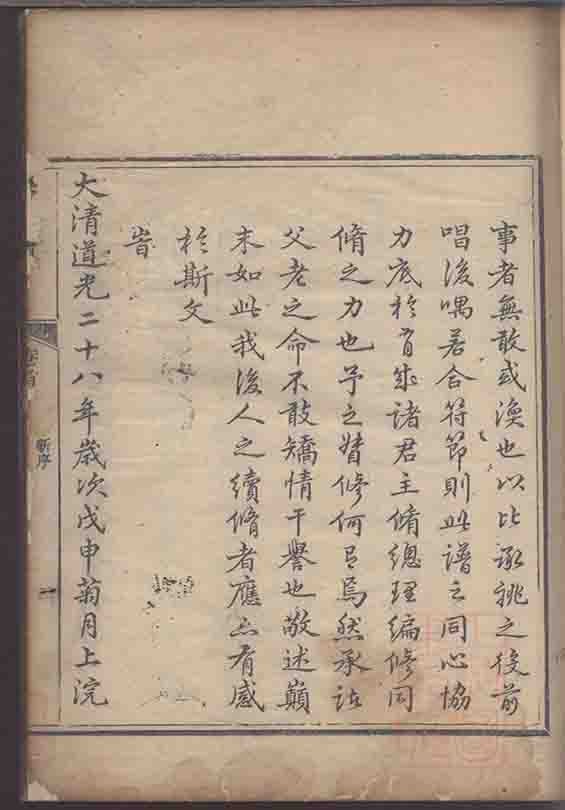 事者無敢或渙也以比承祧之後前
唱後喁若合符節則此譜之同心協
力底於有成諸君主脩總理編修同
脩之力也予之賛修何有焉然承諸
父老之命不敢矯情干譽也敬述巔
末如此我後人之續脩者應亦有感
於斯文
旹
大清道光二十八年歲次戊申菊月上浣
卷首
新序